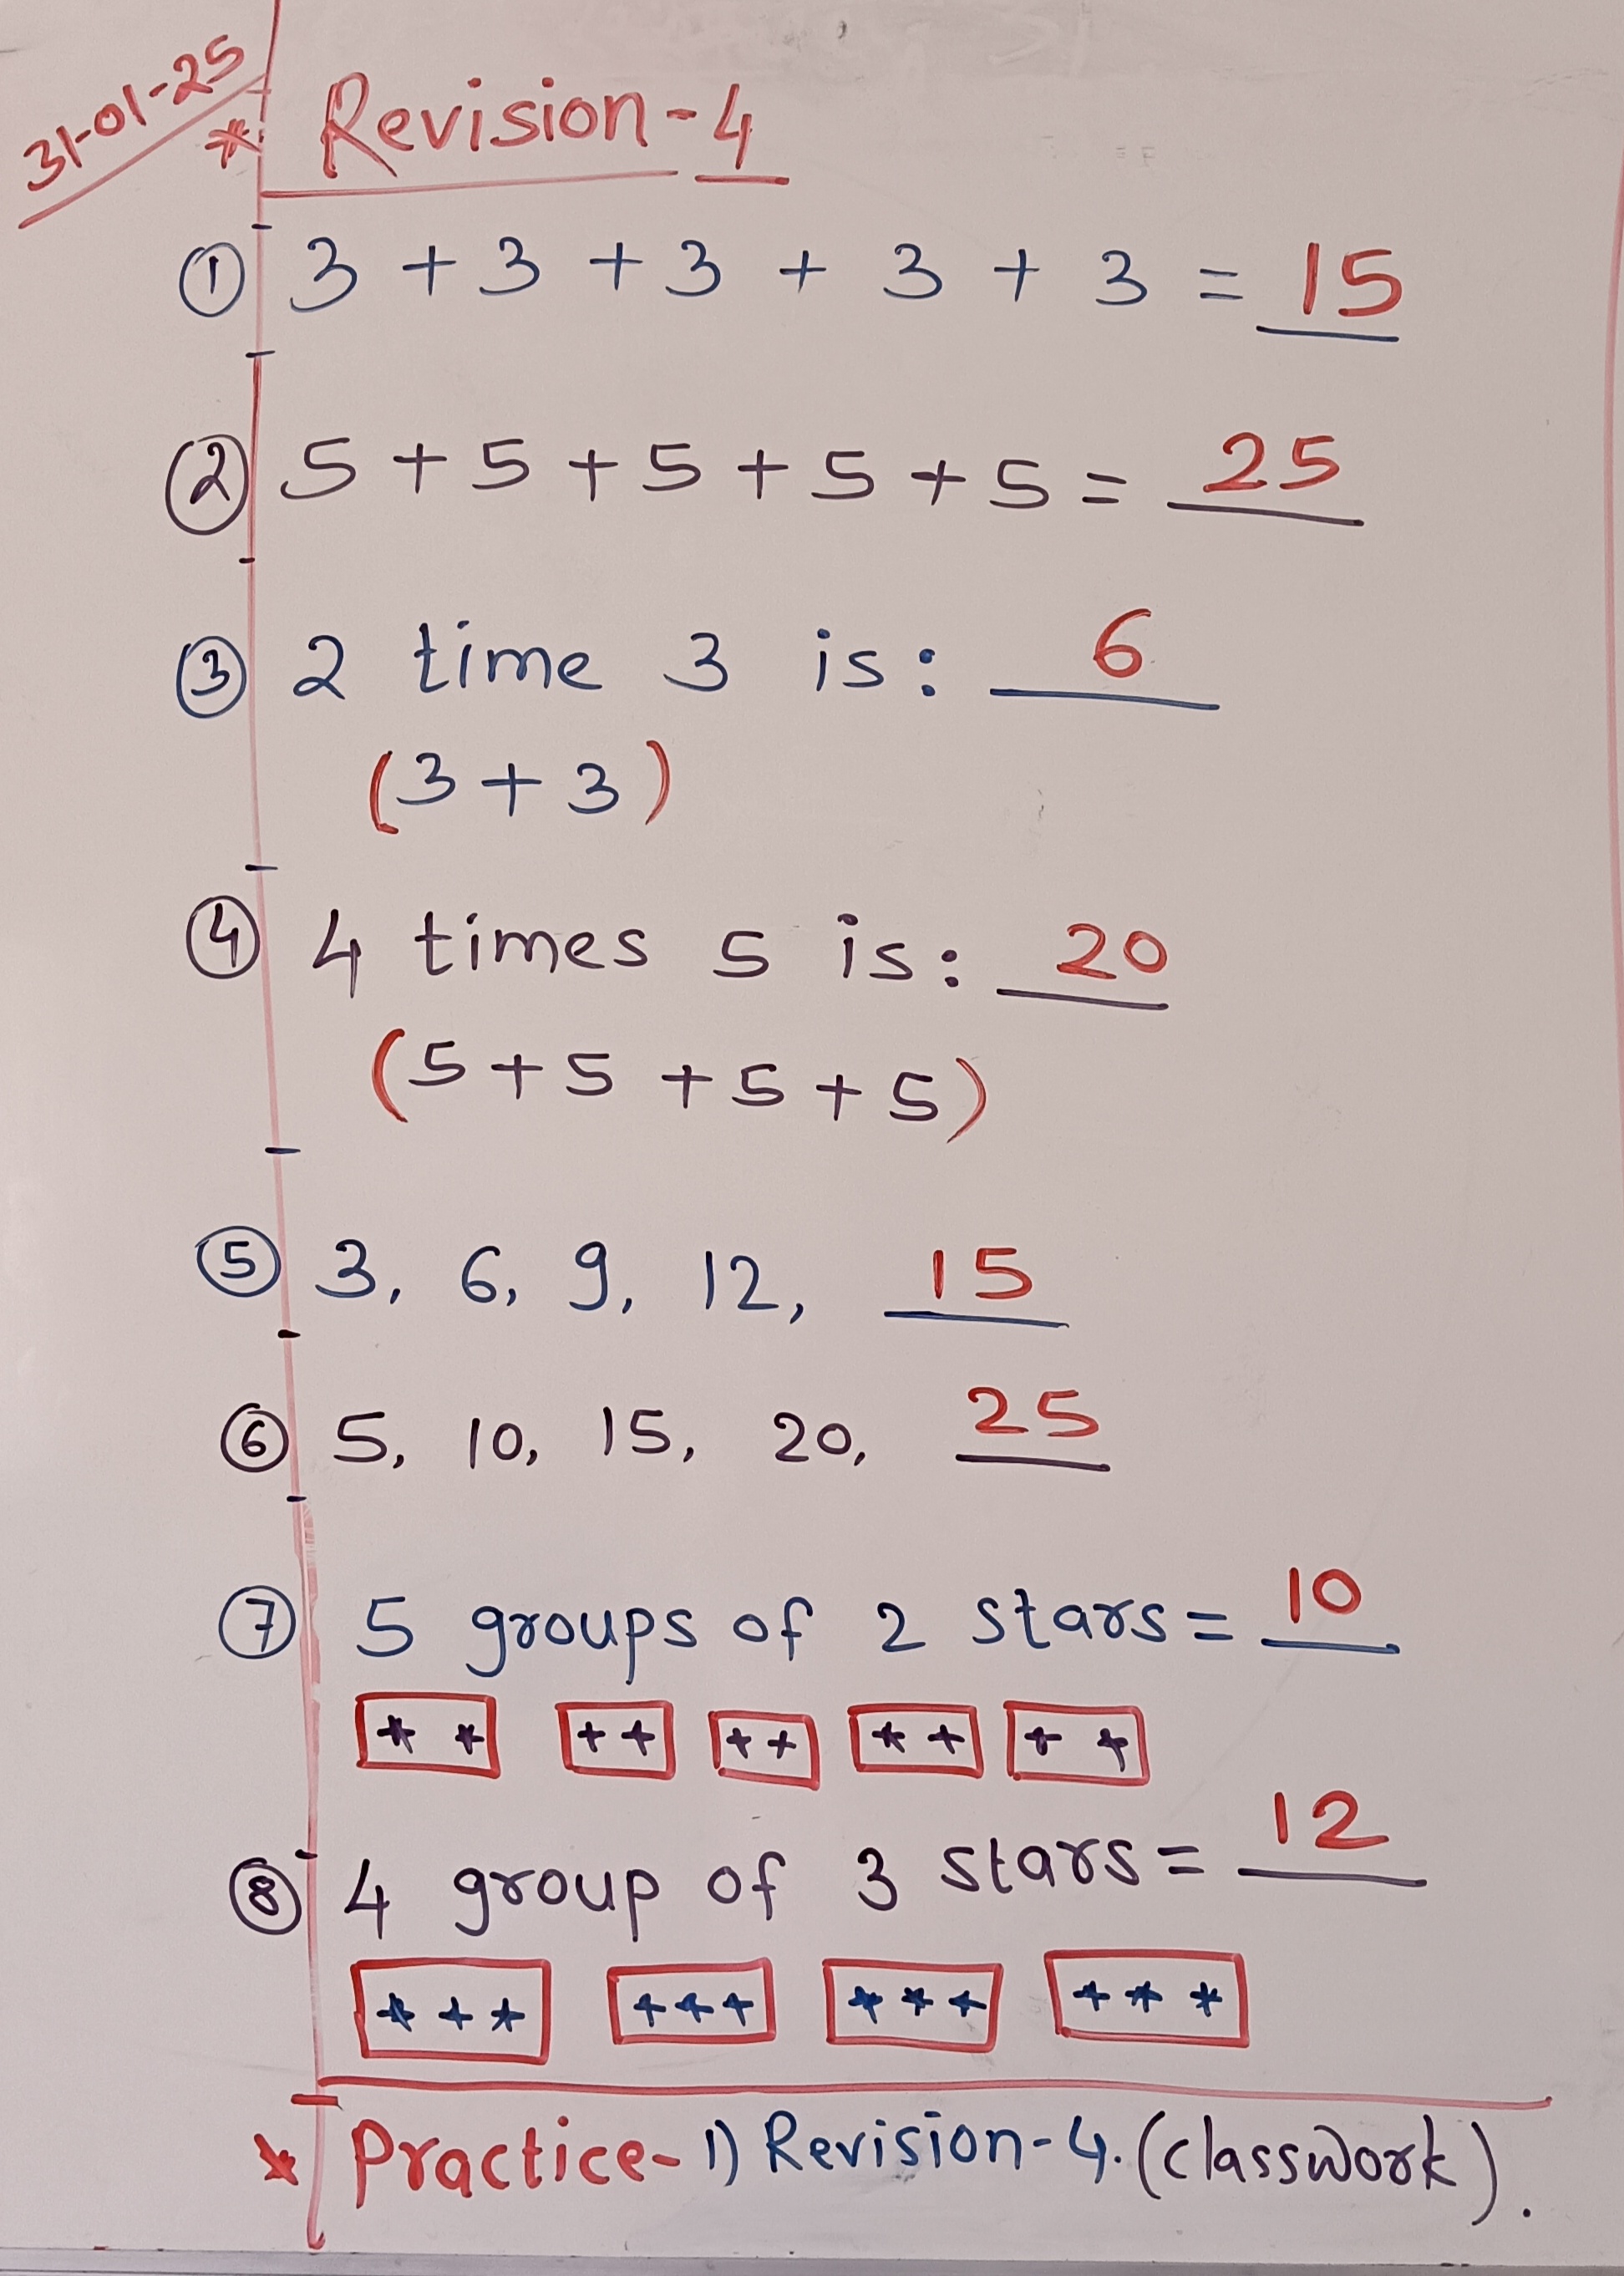 31-01-25
* Revision-4
① 3 + 3 + 3 + 3 + 3 = 15
② 5 + 5 + 5 + 5 + 5 = 25
③ 2 time 3 is: 6
(3 + 3)
④ 4 times 5 is: 20
(5 + 5 + 5 + 5)
⑤ 3, 6, 9, 12, 15
⑥ 5, 10, 15, 20, 25
⑦ 5 groups of 2 stars = 10
⑧ 4 group of 3 stars = 12
* Practice- 1) Revision-4. (classwork).